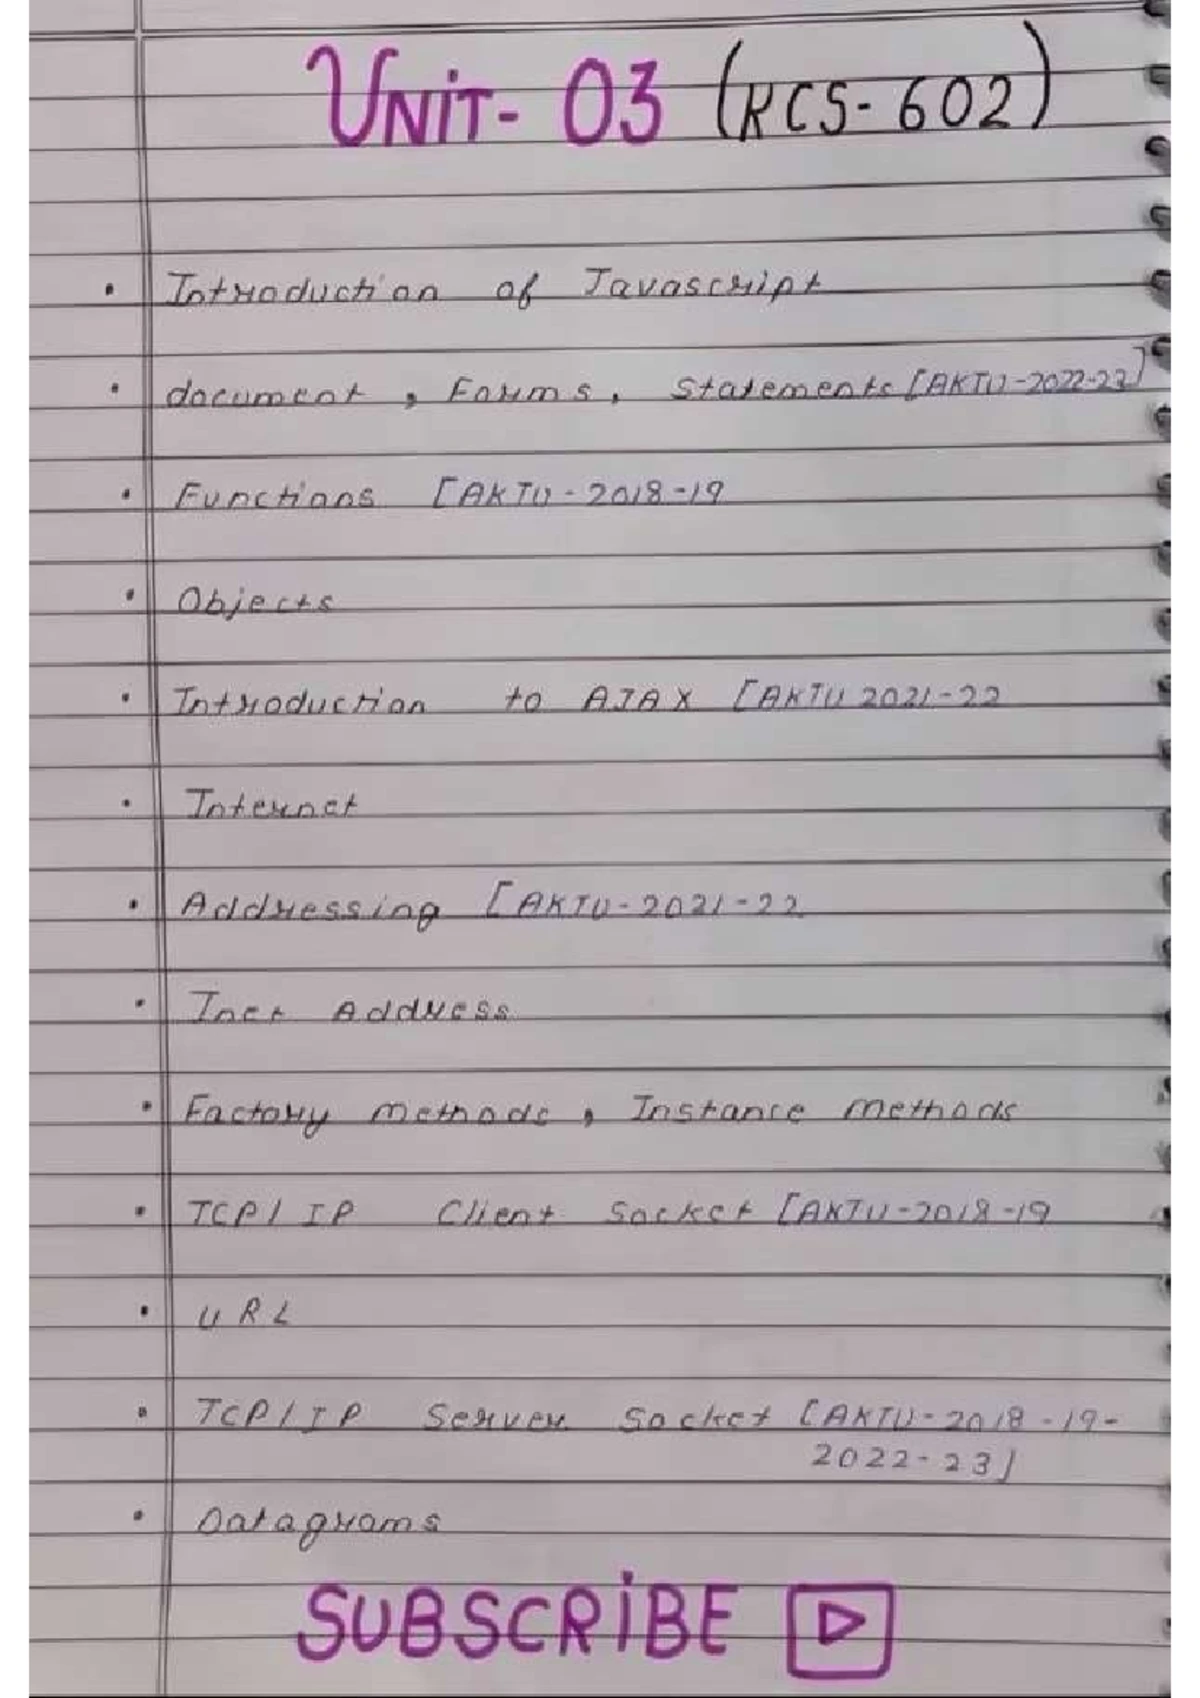 UNIT- 03 (KCS-602)
Introduction of Javascript
document, Forms, Statements [AKTU-2022-23]
Functions [AKTU-2018-19
Objects
Introduction to AJAX [AKTU 2021-22
Internet
Addressing [AKTU-2021-22
Inet Address
Factory methods, Instance methods
TCP/IP Client Socket [AKTU-2018-19
URL
TCP/IP Server Socket [AKTU-2018-19-
2022-23]
Datagrams
SUBSCRIBE